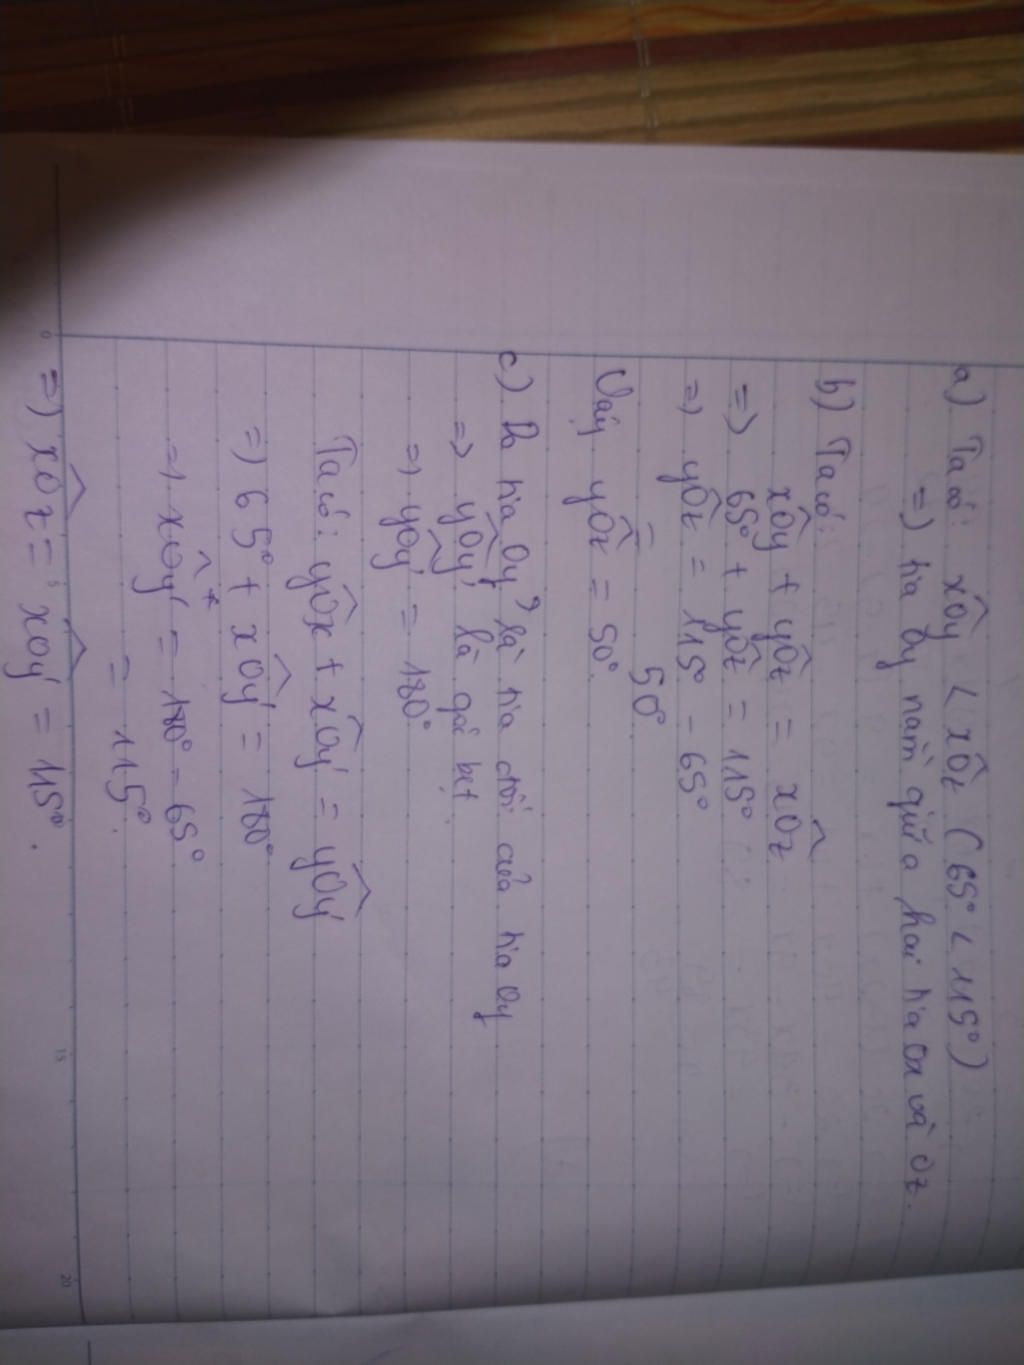 a) Ta có: xÔy < xÔz (65° < 115°)
=) tia Oy nằm giữa hai tia Ox và Oz.
b) Ta có:
xÔy + yÔz = xÔz
=) 65° + yÔz = 115°
=) yÔz = 115° - 65°
= 50°
Vậy yÔz = 50°.
c) Do tia Oy' là tia đối của tia Oy
=) yÔy' là góc bẹt.
=) yÔy' = 180°
Ta có: yÔx + xÔy' = yÔy'
=) 65° + xÔy' = 180°
=) xÔy' = 180° - 65°
= 115°.
=) xÔz = xÔy' = 115°.
0
15
20